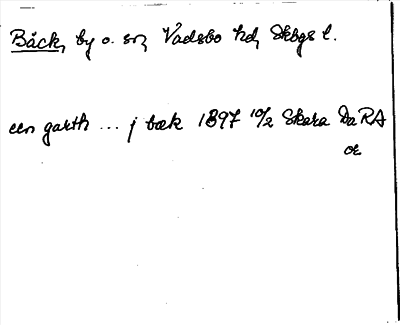 Bäck, by o. sn, Vadsbo hd, Skbgs l.
een garth ... j bæk 1897 10/2 Skara DaRA
or